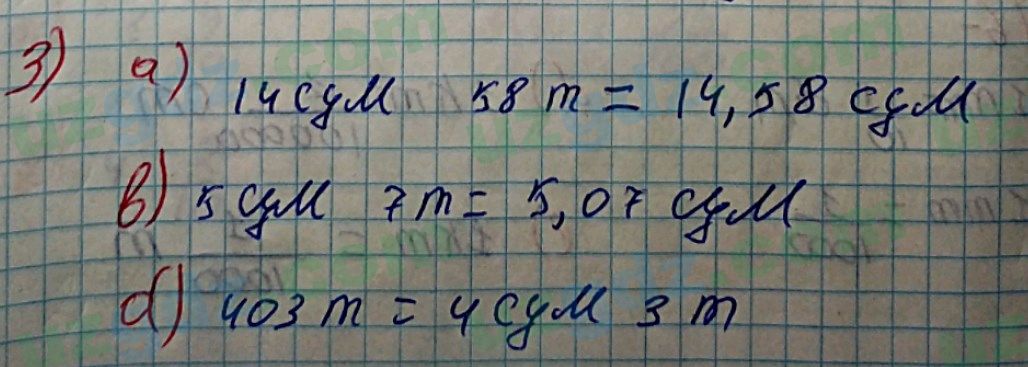 3) a) 14 сум 58 т = 14,58 сум
b) 5 сум 7 т = 5,07 сум
d) 403 т = 4 сум 3 т